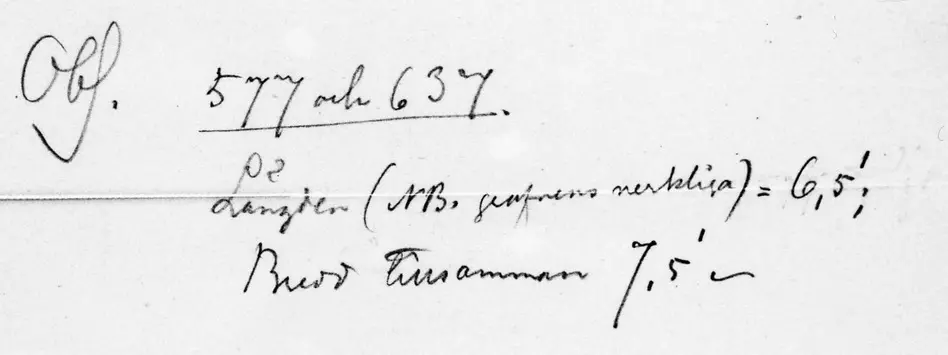 Obs.
577 och 637.
Längden (NB. grafvens verkliga) = 6,5';
Bredd tillsamman 7,5'